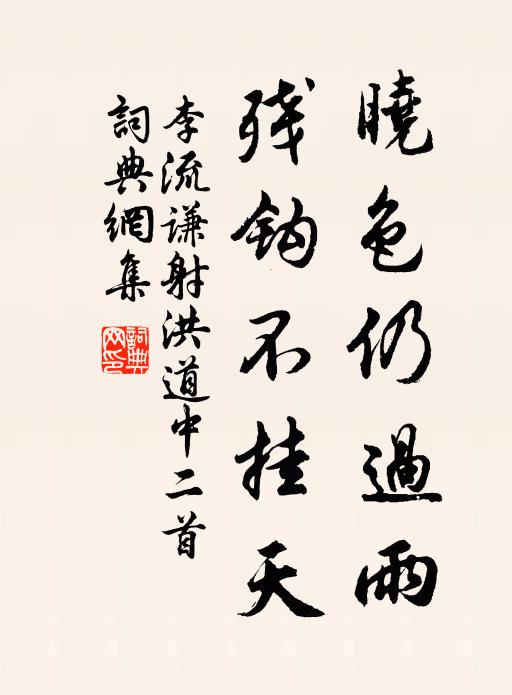 曉色仍過雨
残鈎不挂天
李流谦射洪道中二首
詞典網集
詞典
网印